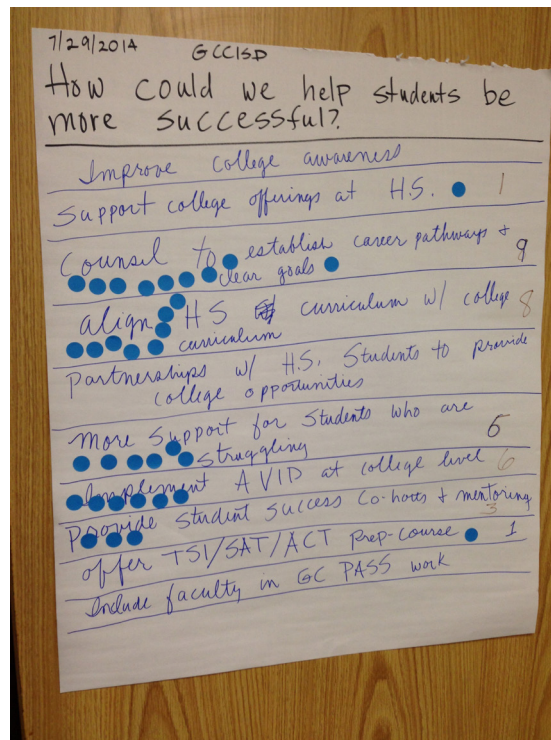 7/29/2014 GCCISD
How could we help students be
more successful?
Improve college awareness
Support college offerings at H.S. 1
Counsel to establish career pathways &
clear goals 9
align HS curriculum w/ college 8
curriculum
Partnerships w/ H.S. Students to provide
college opportunities
More Support for Students who are
struggling 5
Implement AVID at college level 6
Provide Student Success Co-horts & mentoring
3
offer TSI/SAT/ACT Prep-Course 1
Include faculty in GC PASS work